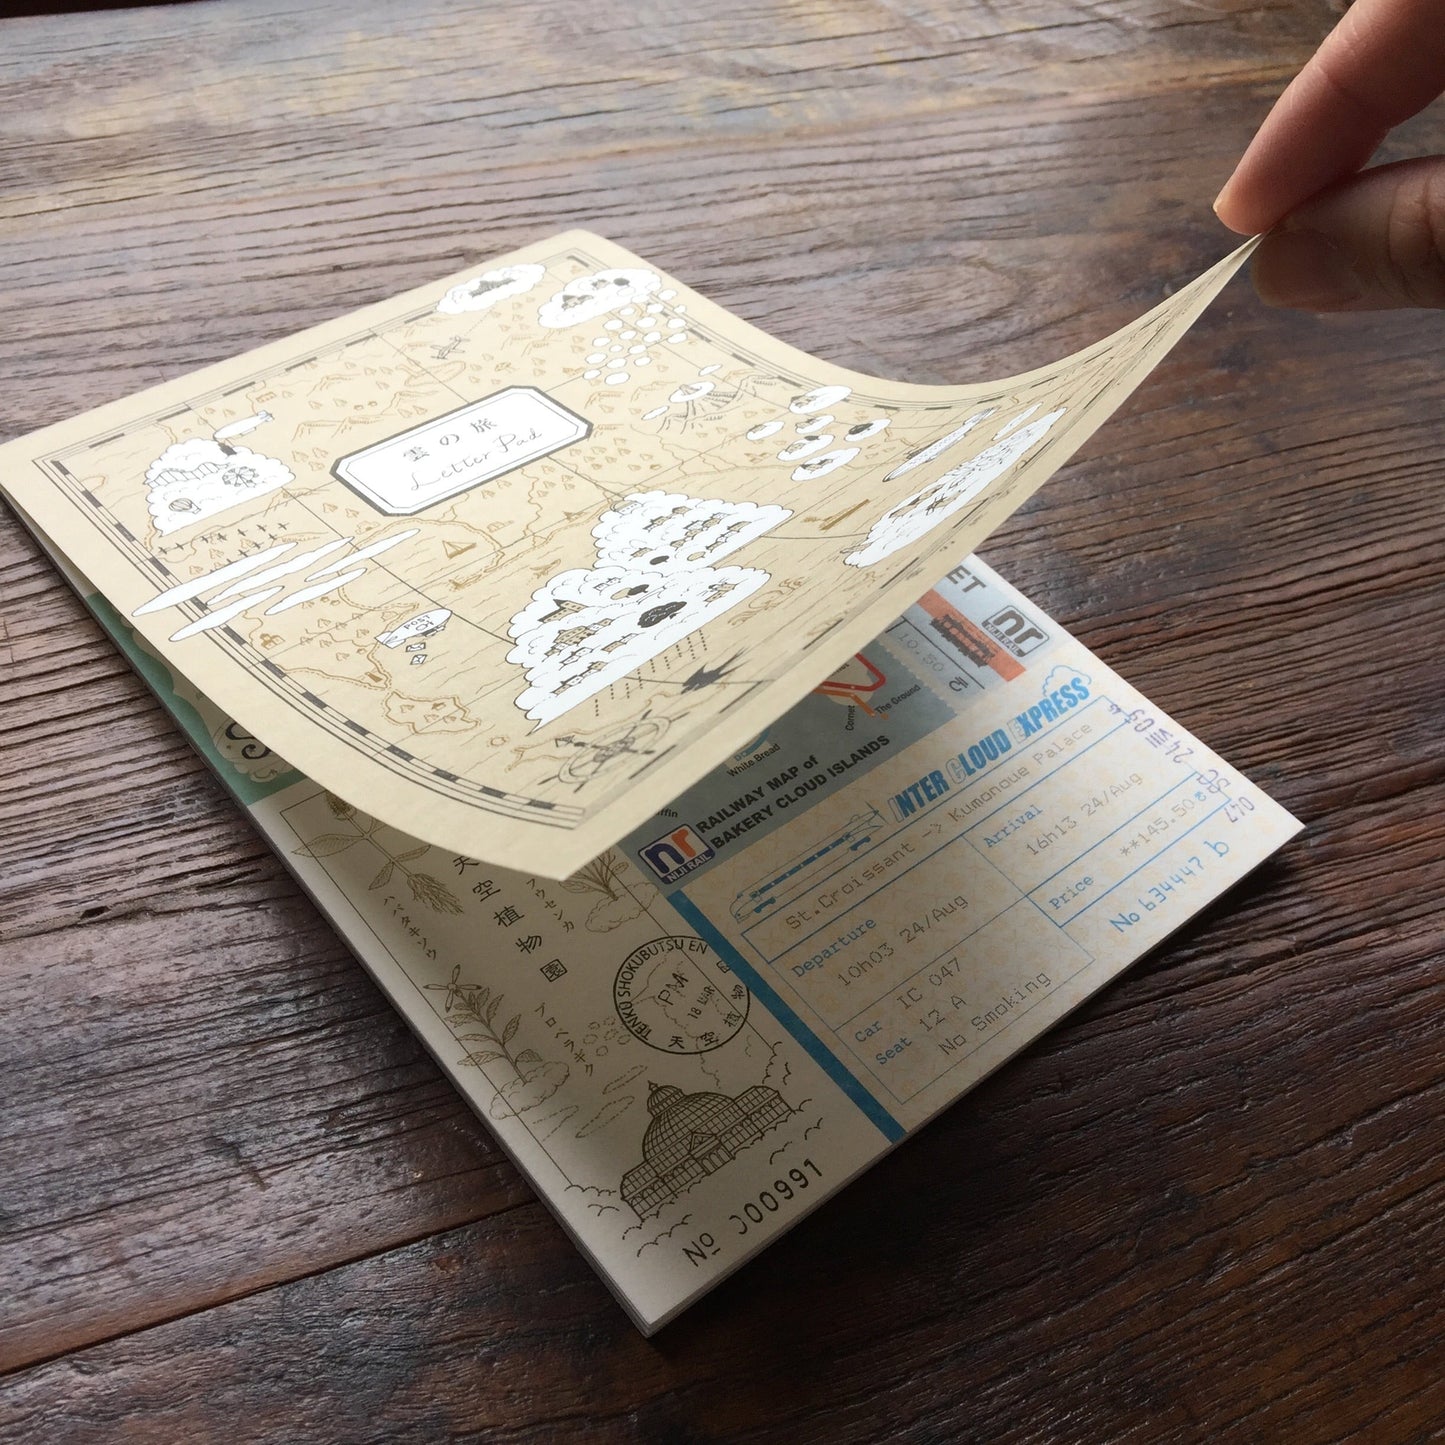 雲の旅
Letter Pad
POST
ET
nr
NIJI RAIL
10.50
Comet
The Ground
White Bread
RAILWAY MAP of
BAKERY CLOUD ISLANDS
nr
NIJI RAIL
INTER CLOUD EXPRESS
St.Croissant -> Kumonoue Palace
Departure
10h03 24/Aug
Arrival
16h13 24/Aug
Car
IC 047
Seat
12 A
No Smoking
Price
**145.50
No 634447 b
ハバタキソウ
天空植物園
フウセンカ
プロペラギク
TENKU SHOKUBUTSU EN
PM
18 MAR
天空植物園
No 000991